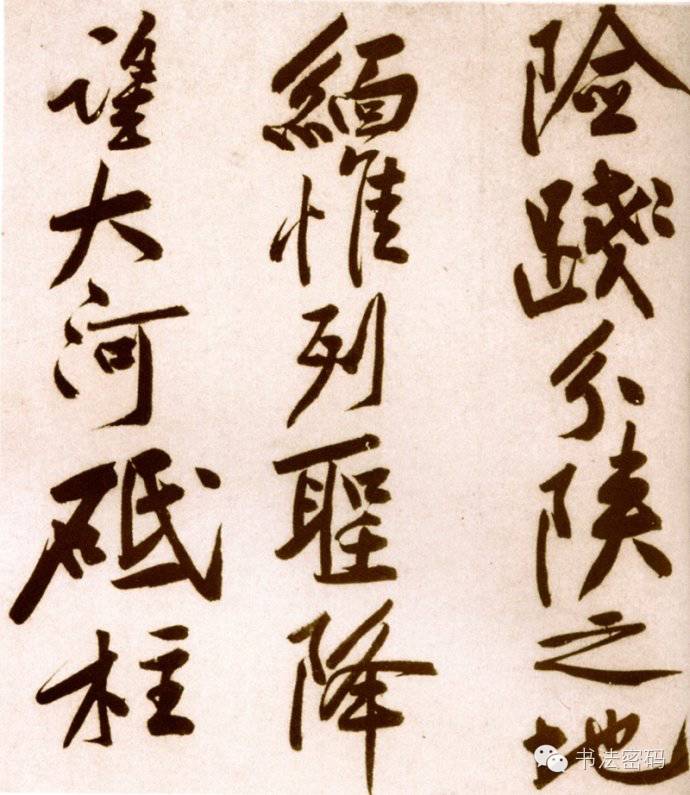 險踐分陝之地
緬惟列聖降
望大河砥柱
书法密码